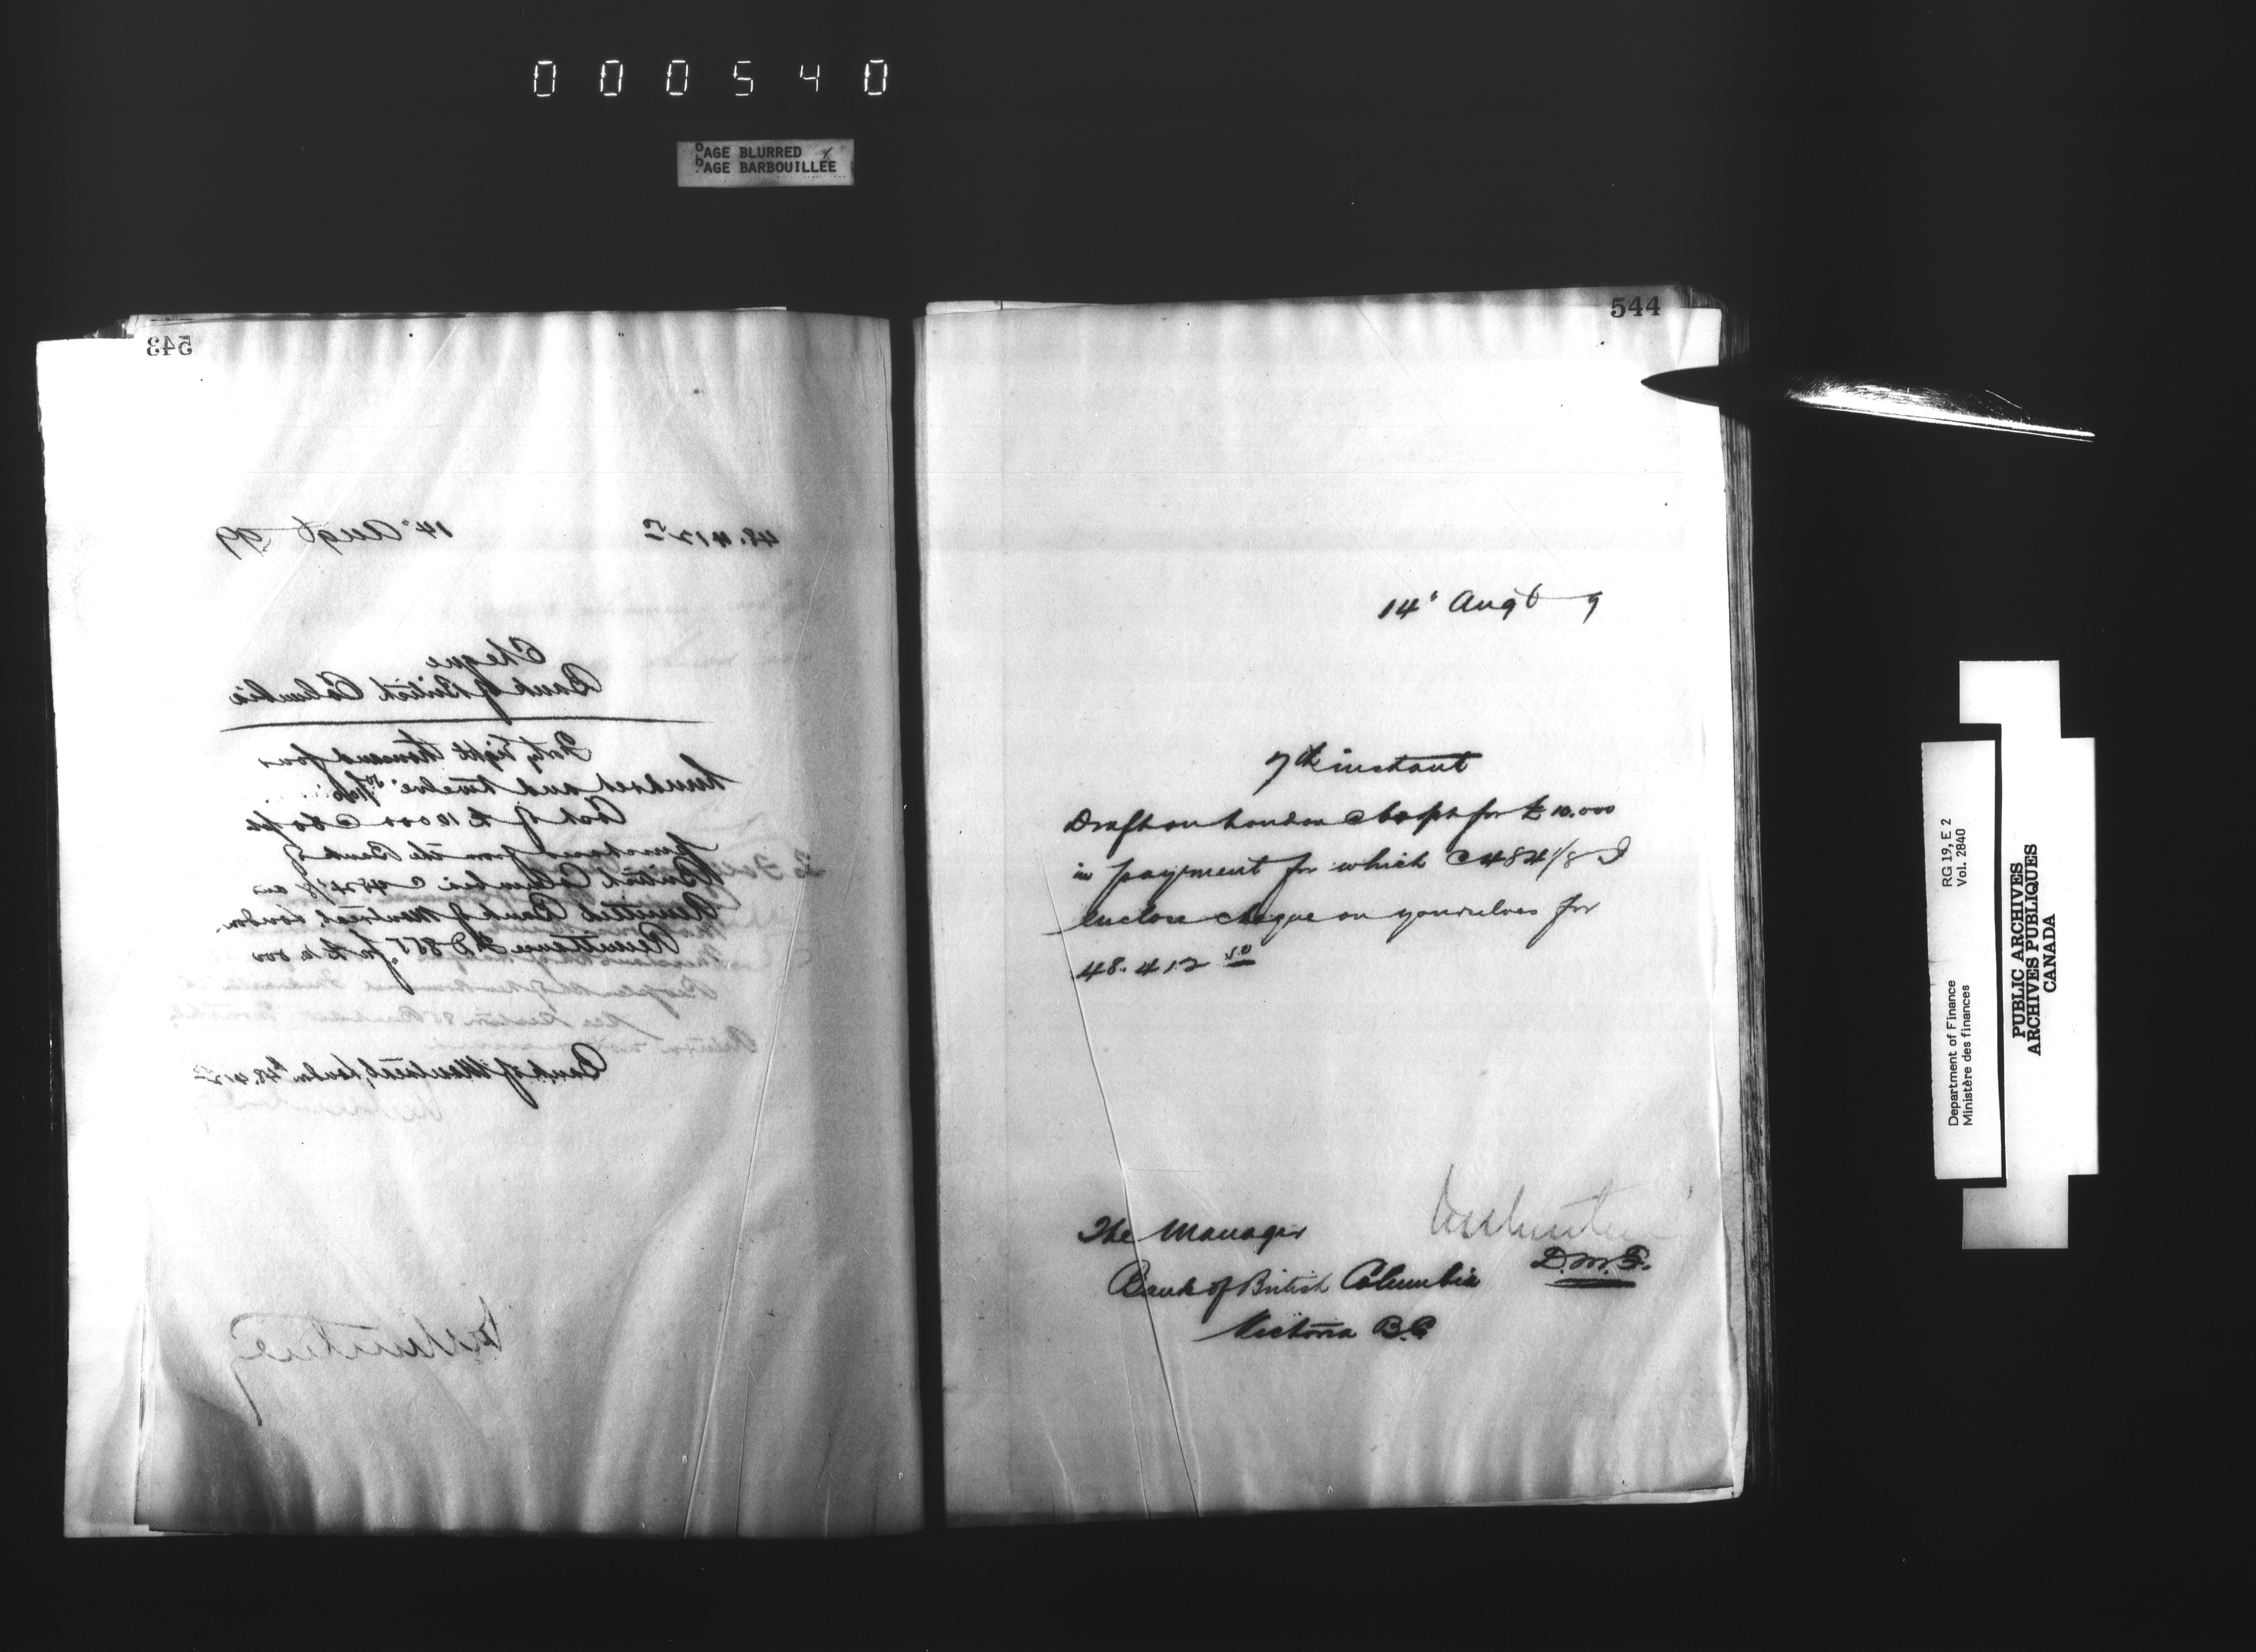 000540
PAGE BLURRED
PAGE BARBOUILLEE
543
48.412 50 14" Augt 99
Cheque
Bank of British Columbia
Forty eight thousand four
hundred and twelve 50/100
Cost of £10000
purchased from the Bank of
British Columbia @ 484 1/8 and
Remitted Bank of Montreal, London
Remittance for £10.000
Bank of Montreal, London 48.412 50
544
14" Augt 9
7th instant
Draft on London for £10.000
in payment for which @ 484 1/8 I
enclose cheque on yourselves for
48.412 50
D.M.F.
The Manager
Bank of British Columbia
Victoria B.C
RG 19, E 2
Vol. 2840
Department of Finance
Ministère des finances
PUBLIC ARCHIVES
ARCHIVES PUBLIQUES
CANADA